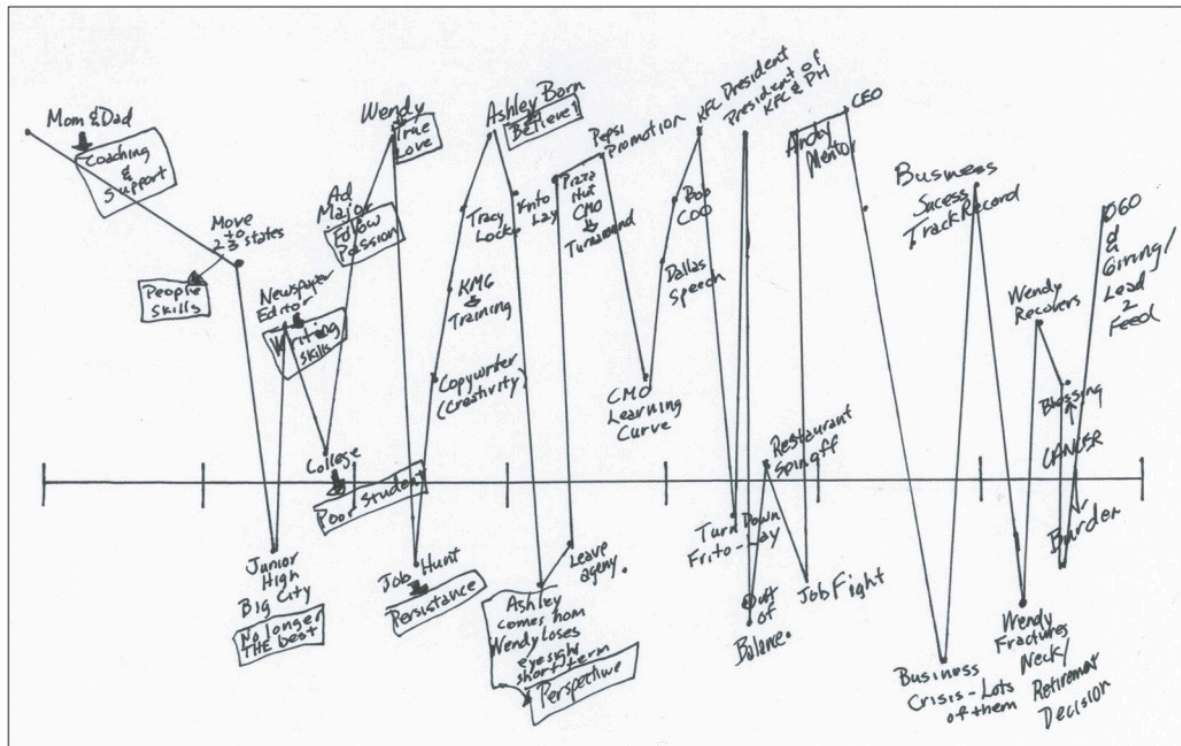 Mom & Dad
Coaching
&
Support
Move
to
23 states
People
Skills
Junior
High
Big City
No longer
THE best
Newspaper
Editor
Writing
Skills
College
Poor Student
Ad
Major
Follow
Passion
Wendy
True
Love
Job Hunt
Persistance
Copywriter
(Creativity)
KMG
&
Training
Tracy
Locke
Ashley Born
Believe!
Ashley
comes hom
Wendy loses
eyesight
short term
Perspective
Leave
ageny.
Frito
Lay
Pizza
Hut
CMO
Turnaround
Pepsi
Promotion
CMO
Learning
Curve
Dallas
Speech
COO
KFC President
President of
KFC & PH
Turn Down
Frito-Lay
Out
of
Balance.
Restaurant
Spinoff
Job Fight
Andy
Mentor
CEO
Business
Crisis - Lots
of them
Business
Sucess
Track Record
Wendy
Fractures
Neck/
Retirement
Decision
Wendy
Recovers
Blessing
CANCER
Burden
OGO
&
Giving/
Lead
2
Feed